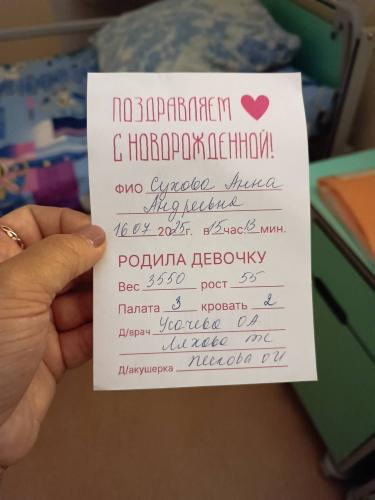 ПОЗДРАВЛЯЕМ
С НОВОРОЖДЕННОЙ!
ФИО Сухова Анна
Андреевна
16.07 2025г. в 15 час 13 мин.
РОДИЛА ДЕВОЧКУ
Вес 3550 рост 55
Палата 3 кровать 2
Д/врач Усачева О.А.
Ляхова
Д/акушерка Пескова О И